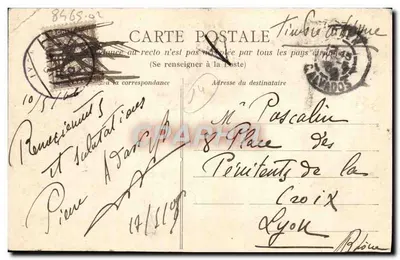 8465-02
CARTE POSTALE
au recto n'est pas par tous les pays
(Se renseigner à la Poste)
la correspondance
Adresse du destinataire
CALVADOS
Remerciements
et salutations
Pierre
17/5/05
M. Pascalin
8 Place des
Pénitents de la
Croix
Lyon
Rhône